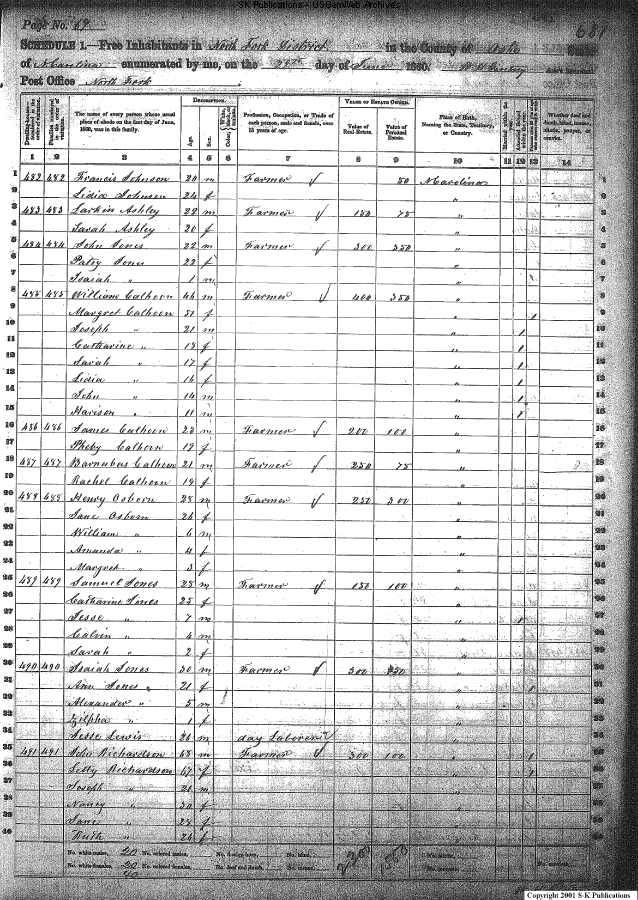 S-K Publications - USGenWeb Archives
Page No. 69
681
SCHEDULE 1.—Free Inhabitants in North Fork District in the County of Ashe
of N Carolina enumerated by me, on the 29th day of June 1860.
Post Office North Fork
DESCRIPTION. VALUE OF ESTATE OWNED.
The name of every person whose usual place of abode on the first day of June, 1860, was in this family.
Age. Sex. Profession, Occupation, or Trade of each person, male and female, over 15 years of age. Value of Real Estate. Value of Personal Estate. Place of Birth, Naming the State, Territory, or Country.
1 2 3 4 5 6 7 8 9 10 11 12 13 14
1 482 482 Francis Johnson 20 m Farmer 50 N Carolina 1
2 Lidia Johnson 24 f "
3 483 483 Larkin Ashley 22 m Farmer 150 75 "
4 Sarah Ashley 20 f "
5 484 484 John Jones 22 m Farmer 300 350 "
6 Patsy Jones 22 f "
7 Isaiah " 1 m "
8 485 485 William Calhoon 46 m Farmer 400 350 "
9 Margret Calhoon 51 f " 1
10 Joseph " 21 m "
11 Catharine " 18 f " 1
12 Sarah " 17 f " 1
13 Lidia " 16 f " 1
14 John " 14 m " 1
15 Harison " 11 m " 1
16 486 486 James Calhoon 23 m Farmer 200 100 "
17 Pheby Calhoon 19 f "
18 487 487 Barnabus Calhoon 21 m Farmer 250 75 "
19 Rachel Calhoon 19 f "
20 488 488 Henry Osborn 28 m Farmer 250 300 "
21 Jane Osborn 26 f "
22 William " 6 m "
23 Amanda " 4 f "
24 Margret " 3 f "
25 489 489 Samuel Jones 28 m Farmer 150 100 "
26 Catharine Jones 25 f "
27 Jesse " 7 m " 1
28 Calvin " 4 m "
29 Sarah " 2 f "
30 490 490 Isaiah Jones 30 m Farmer 300 350 "
31 Ann Jones 21 f " 1
32 Alexander " 5 m "
33 Zilpha " 1 f "
34 Jesse Lewis 26 m day Laborer "
35 491 491 John Richardson 68 m Farmer 300 100 " 1
36 Letty Richardson 67 f " 1
37 Joseph " 21 m "
38 Nancy " 30 f "
39 Jane " 28 f "
40 Ruth " 24 f "
No. white males, 20 No. colored males, No. foreign born, No. blind,
No. white females, 20 No. colored females, No. deaf and dumb,
40
Copyright 2001 S-K Publications